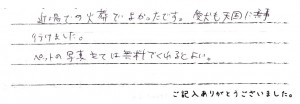 近場での火葬でよかったです。愛犬も天国に
行けました。
ペットの写真立ては無料でくれるとよい。
ご記入ありがとうございました。